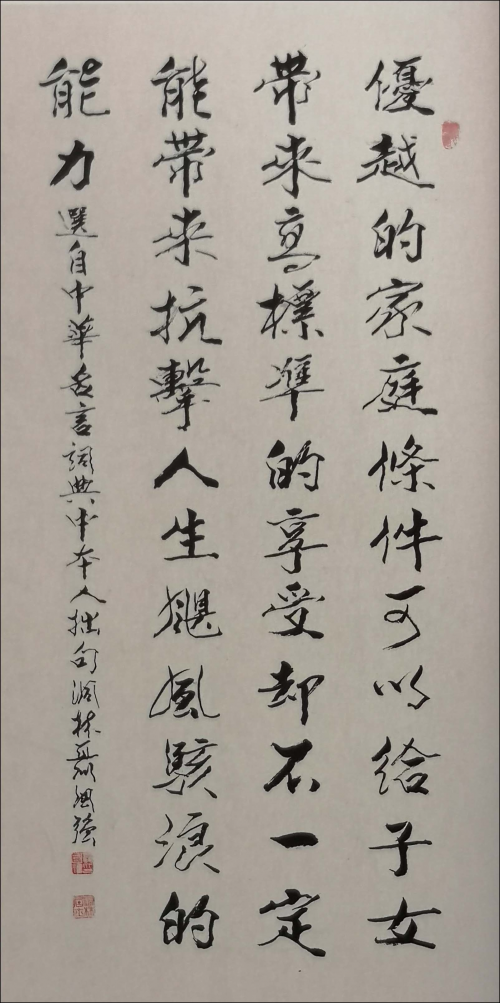 優越的家庭條件可以給子女
帶來高標準的享受却不一定
能帶來抗擊人生颶風駭浪的
能力
選自中華名言詞典中本人拙句 林聶